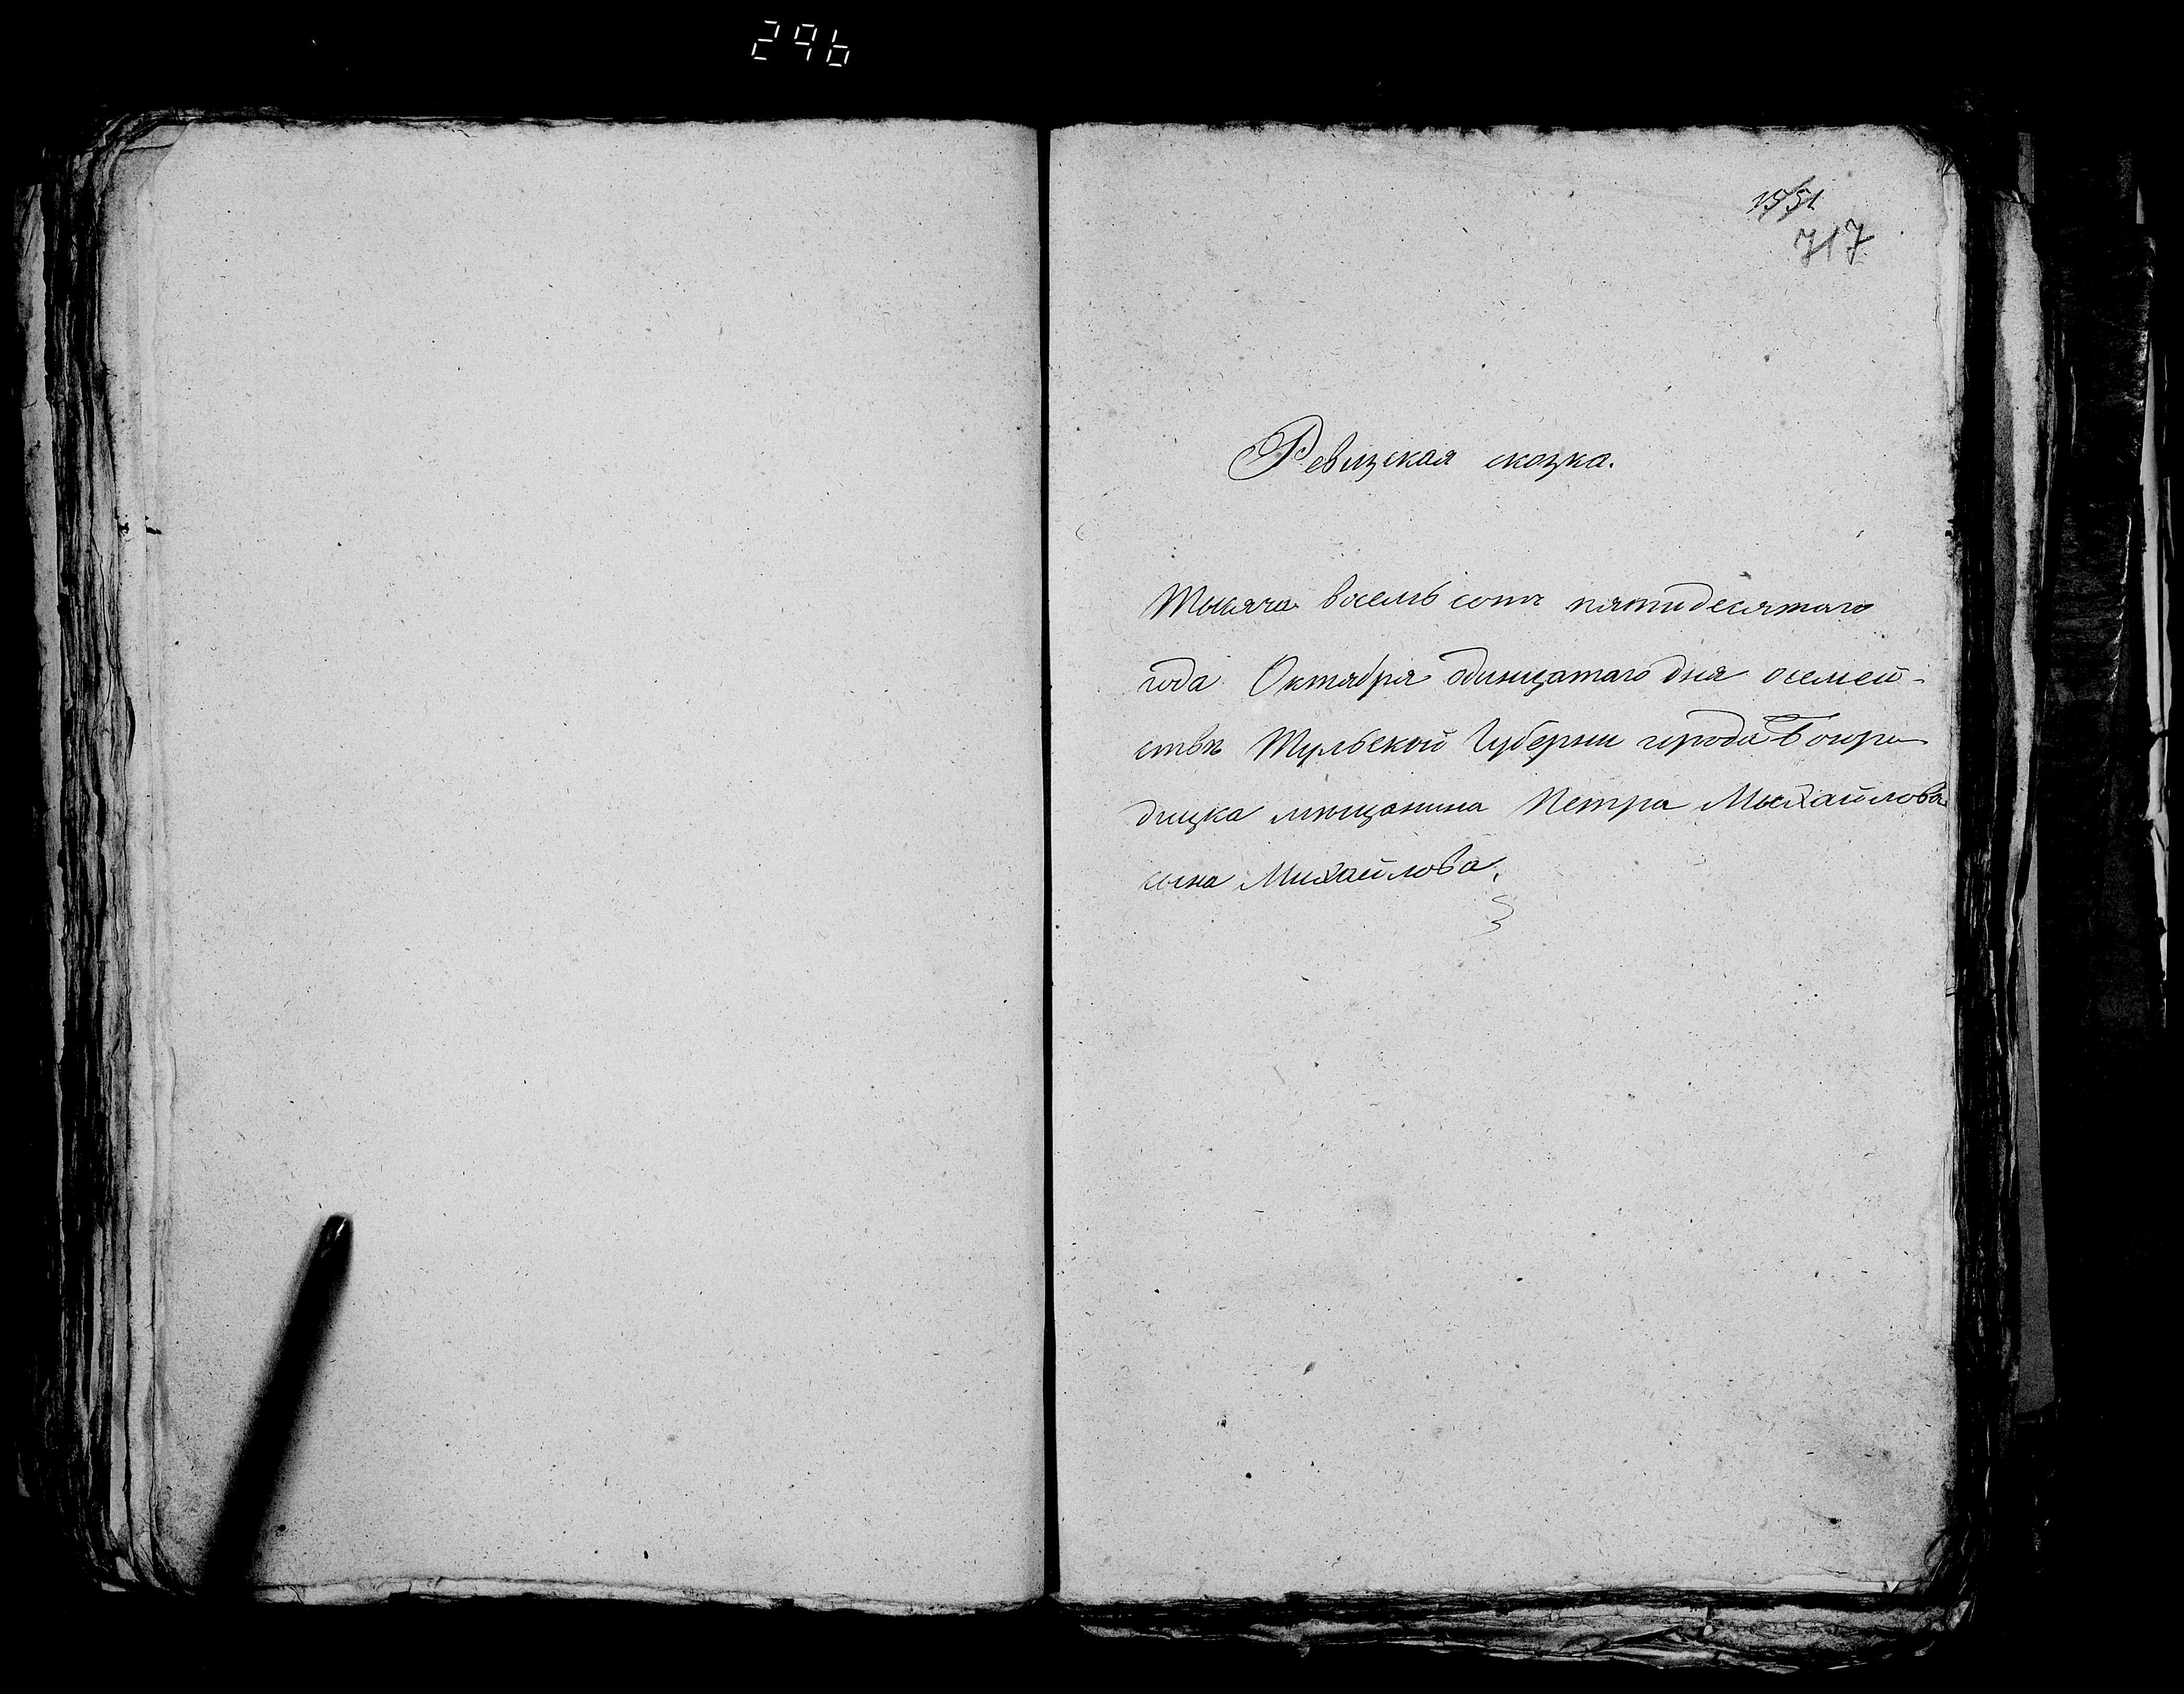 296
1551
717
Ревизская сказка.
Тысяча восемь сотъ пятидесятаго
года Октября одинцатаго дня осемей-
ствѣ Тульской Губерни города Богоро
дицка мѣщанина Петра Михайлова
сына Михайлова.